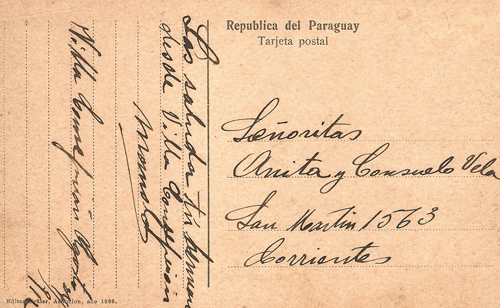 Republica del Paraguay
Tarjeta postal
Señoritas
Anita y Consuelo Vela
San Martin 1563
Corrientes
Las saluda tu hermano
desde Villa Concepción
Manolo
Villa Concepción Agosto